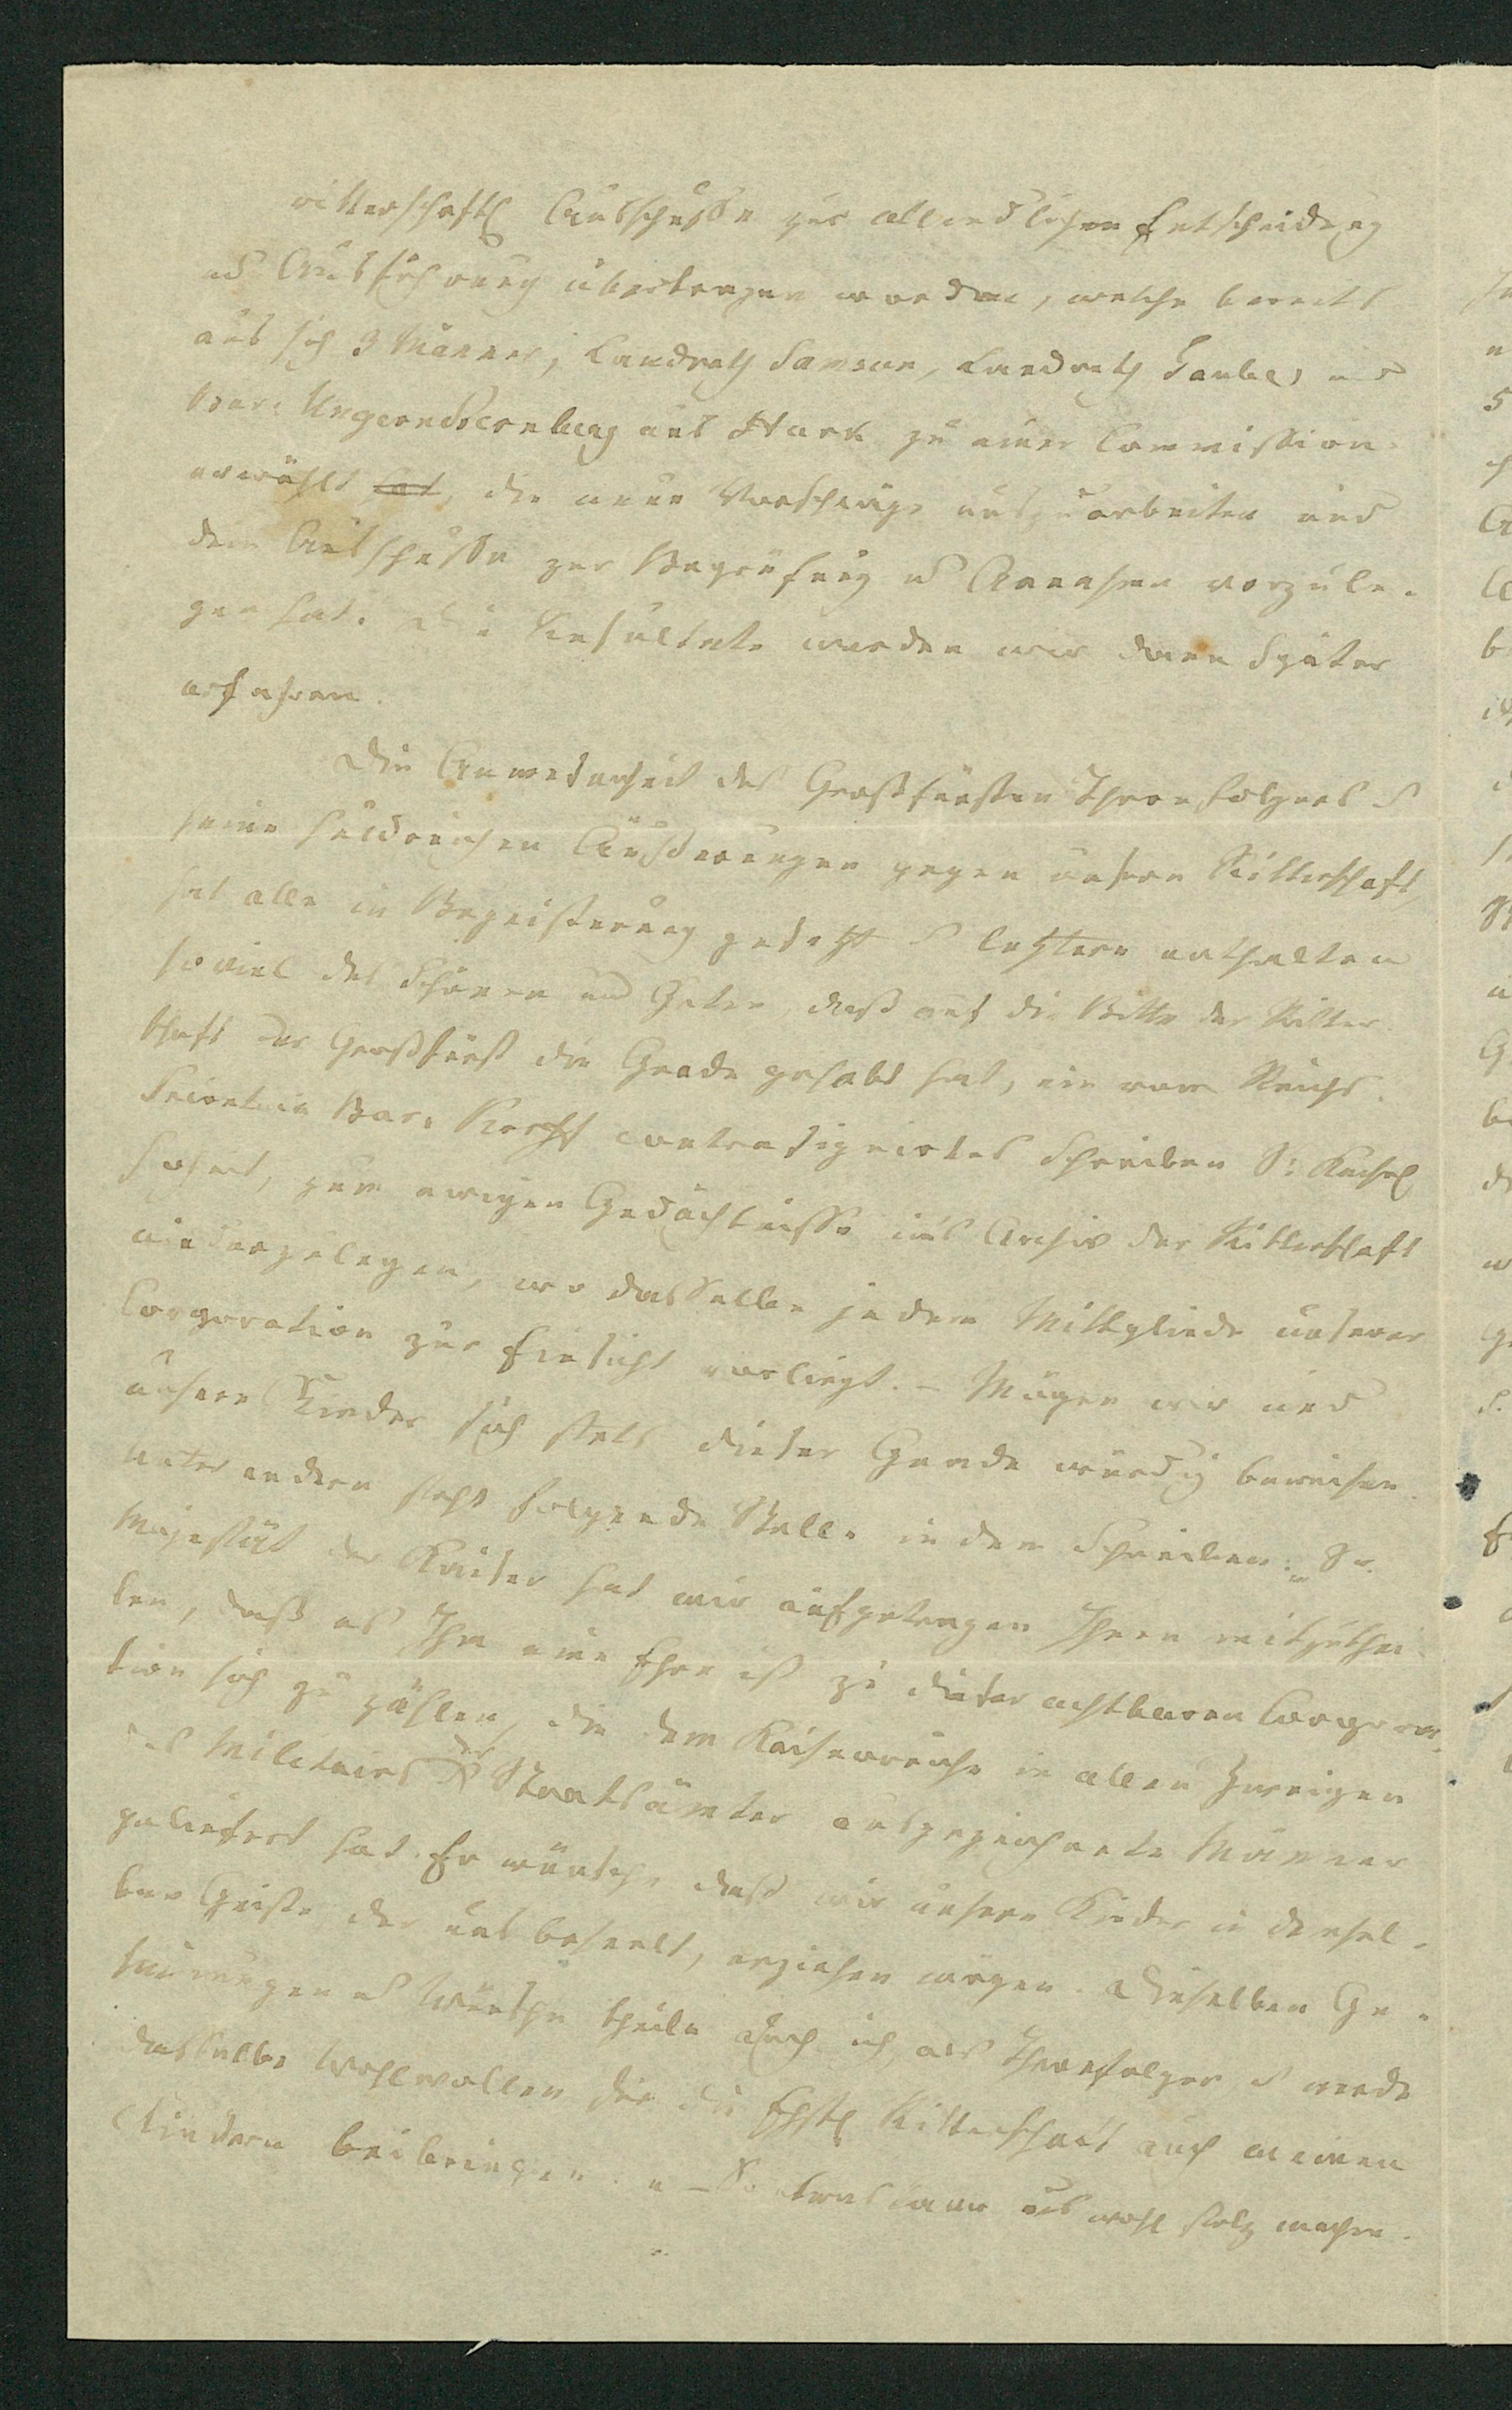 ritterschaftl Ausschusse zur allendlichen Entscheidung
u Ausführung übertragen worden, welche bereits
aus sich 3 Männer, Landrath Samson, Landrath Taube und
Baro Ungern Sternberg aus Hark zu einer Commission
erwählt hat, die neue Vorschläge auszuarbeiten und
dem Ausschusse zur Begrüfung u Annahme vorzule-
gen hat. Die Resultate werden wir dann später
erfahren.
Die Anwesenheit des Großfürsten Thronfolgers u
seine huldreichen Äußerungen gegen unsere Ritterschaft,
hat alle in Begeisterung gesetzt u letztere enthalten
soviel des Schönen und Guten, daß auf die Bitte der Ritter-
schaft der Großfürst die Gnade gehabt hat, ein vom Reichs-
Secretair Bar. Korff contrasignirtes Schreiben Sr Kaiserl
Hoheit, zum ewigen Gedächtnisse ins Archiv der Ritterschaft
niederzulegen, wo dasselbe jedem Mittgliede unserer
Corporation zur Einsicht vorliegt. – Mögen wir und
unsere Kinder sich stets dieser Gnade würdig beweisen.
Unter andern steht folgende Stelle in dem Schreiben: „Se.
Majestät der Kaiser hat mir aufgetragen Ihnen mitzuthei-
len, daß es Ihm eine Ehre ist zu dieser achtbaren Corpora-
tion sich zu zählen, die dem Kaiserreiche in allen Zweigen
des Militairs u der Staatsämter ausgezeichnete Männer
geliefert hat. Er wünsche, daß wir unsere Kinder in demsel-
ben Geiste der uns beseelt, erziehen mögen. Dieselben Ge-
sinnungen u Wünsche theile auch ich, als Thronfolger u werde
dasselbe Wohlwollen für die Ehstl Ritterschaft auch meinen
Kindern beibringen." – So etwas kann uns wohl stolz machen.